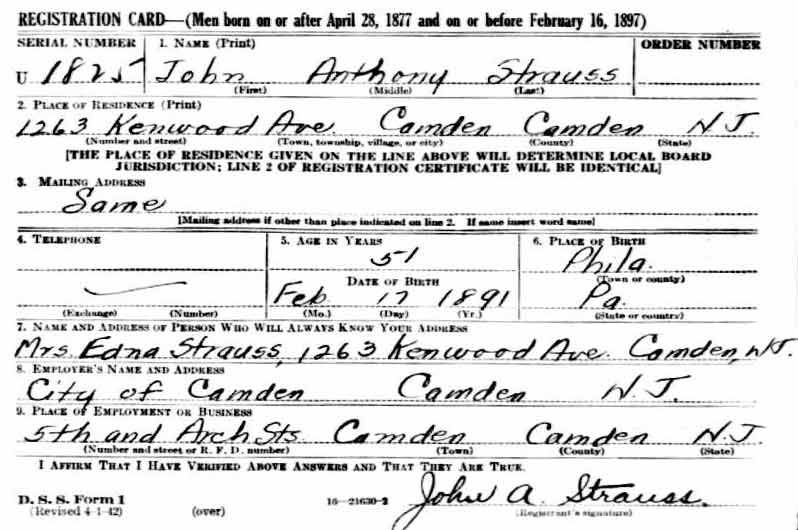 REGISTRATION CARD—(Men born on or after April 28, 1877 and on or before February 16, 1897)
SERIAL NUMBER 1. NAME (Print) ORDER NUMBER
U 1825 John Anthony Strauss
(First) (Middle) (Last)
2. PLACE OF RESIDENCE (Print)
1263 Kenwood Ave. Camden Camden N.J.
(Number and street) (Town, township, village, or city) (County) (State)
[THE PLACE OF RESIDENCE GIVEN ON THE LINE ABOVE WILL DETERMINE LOCAL BOARD
JURISDICTION; LINE 2 OF REGISTRATION CERTIFICATE WILL BE IDENTICAL]
3. MAILING ADDRESS
Same
[Mailing address if other than place indicated on line 2. If same insert word same]
4. TELEPHONE 5. AGE IN YEARS 6. PLACE OF BIRTH
51 Phila.
(Town or county)
DATE OF BIRTH
Feb 17 1891 Pa.
(Exchange) (Number) (Mo.) (Day) (Yr.) (State or country)
7. NAME AND ADDRESS OF PERSON WHO WILL ALWAYS KNOW YOUR ADDRESS
Mrs. Edna Strauss, 1263 Kenwood Ave. Camden, N.J.
8. EMPLOYER'S NAME AND ADDRESS
City of Camden Camden N.J.
9. PLACE OF EMPLOYMENT OR BUSINESS
5th and Arch Sts. Camden Camden N.J.
(Number and street or R. F. D. number) (Town) (County) (State)
I AFFIRM THAT I HAVE VERIFIED ABOVE ANSWERS AND THAT THEY ARE TRUE.
D. S. S. Form 1
(Revised 4-1-42) (over) 16—21630-2 John A. Strauss.
(Registrant's signature)